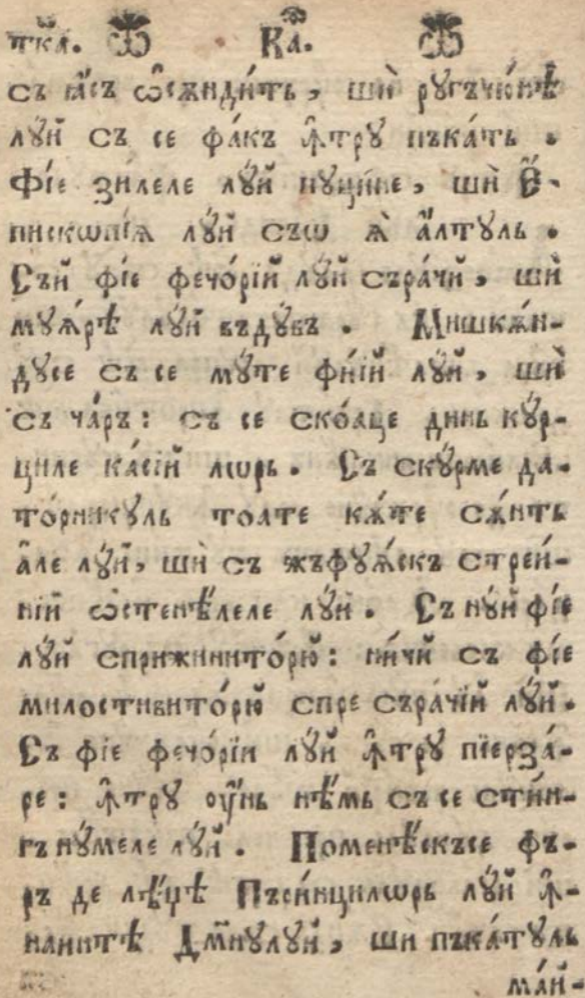 тка҃. ѾКа҃. Ѿ
съ ꙗ҆съ ѡ҆сѫнди́ть, шѝ ругъчю́нѣ
лꙋ́й съ се фа́къ ꙟ҆трꙋ пъка́ть.
Фі́е зи́леле лꙋ́й пꙋци́не, шѝ Е҆-
пископі́ѧ лꙋ́й съѡ ꙗ҆̀ а҆́лтꙋль.
Съй фі́е фечо́рїй лꙋ́й сѣра́чй, шѝ
мꙋꙗ́рѣ лꙋ́й въдꙋ́въ. Мишкѫ́н-
дꙋсе съ се мꙋ́те фі́їй лꙋ́й, шѝ
съ ча́ръ: съ се ско́аце динь кꙋ́р-
циле ка́сїй лѡрь. Съ скꙋ́рме да-
то́рникꙋль тоате кѫ́те сѫ́нть
а҆ле лꙋ́й, шѝ съ жъфꙋꙗ́скъ стреи́-
нїй ѡ҆стенѣ́леле лꙋ́й. Съ нꙋ́й фі́е
лꙋ́й сприжинито́рю: ни́чй съ фі́е
милостивито́рю спре съра́чїй лꙋ́й.
Съ фі́е фечо́рїи лꙋ́й ꙟ҆трꙋ пїерза́-
ре: ꙟ҆трꙋ оу҆́нь нѣ́мь съ се сти́н-
гъ нꙋ́меле лꙋ́й. Поменѣ́скъсе фъ-
ръ де лѣ́џѣ Пъри́нцилѡрь лꙋ́й ꙟ҆-
наинтѣ Дм҃нꙋлꙋ́й, шѝ пъка́тꙋль
ма́й-